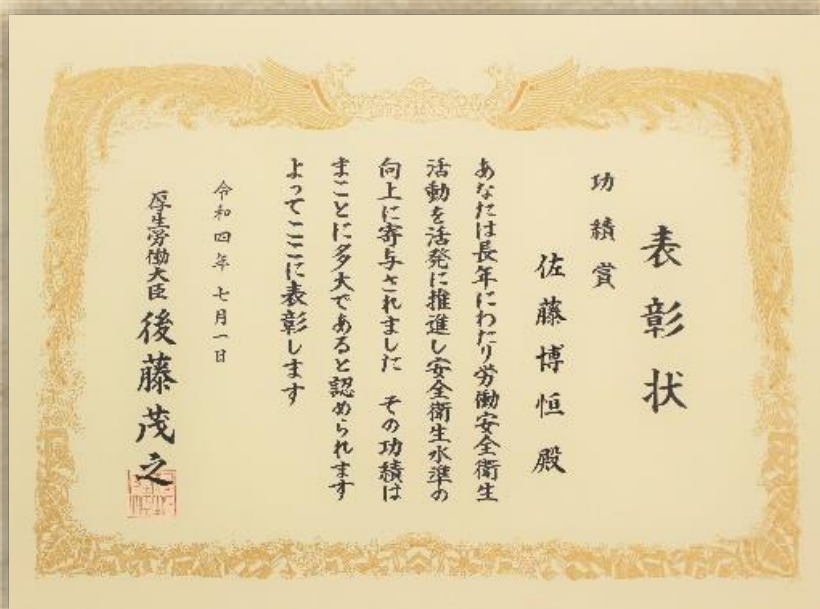 表彰状
功績賞
佐藤博恒殿
あなたは長年にわたり労働安全衛生
活動を活発に推進し安全衛生水準の
向上に寄与されました その功績は
まことに多大であると認められます
よってここに表彰します
令和四年七月一日
厚生労働大臣 後藤茂之